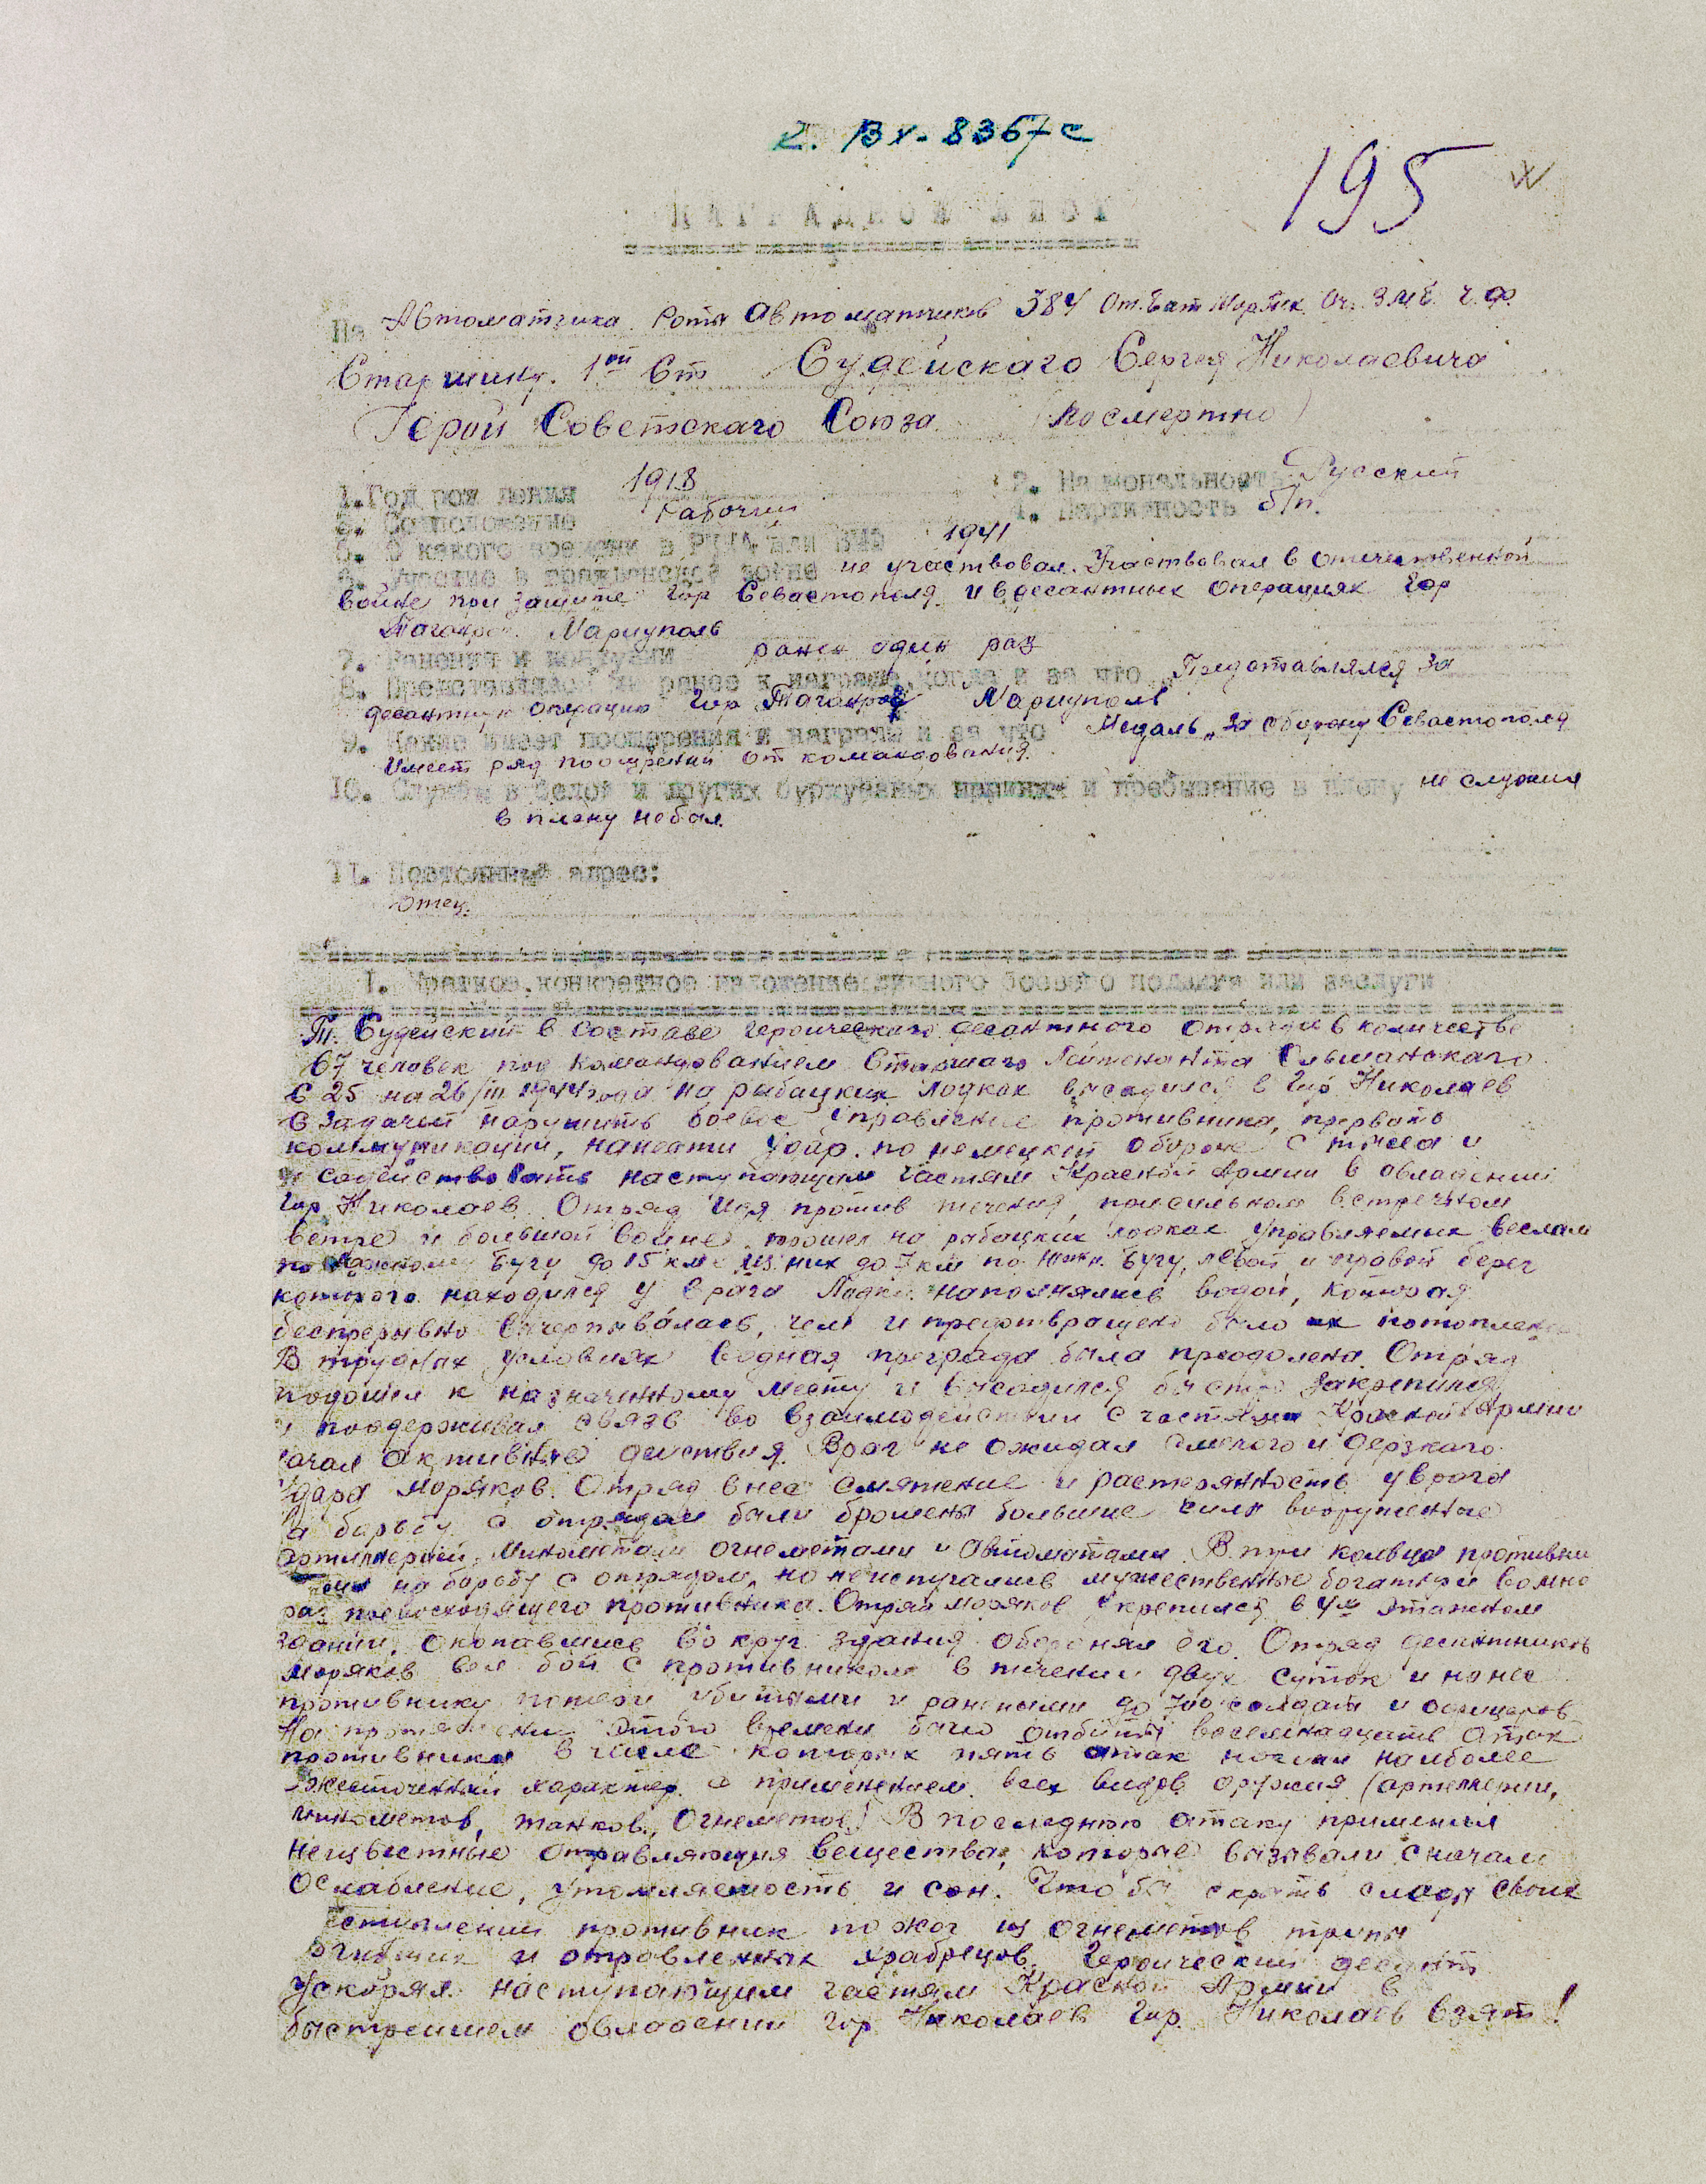 2. Вх. 8367с
195
НАГРАДНОЙ ЛИСТ
На Автоматчика Роты Автоматчиков 384 От. Бат. Мор. Пех. Оч. ЧФ.
Старшину 1ой Ст Судейскаго Сергея Николаевича
Герой Советскаго Союза (посмертно)
1. Год рождения 1918 2. Национальность Русский
3. Соцположение Рабочий 4. Партийность б/п.
5. С какого времени в РККА или ВМФ 1941
6. Участие в гражданской войне не участвовал. Участвовал в отечественной
войне при защите гор Севастополя и в десантных операциях гор
Таганрог. Мариуполь
7. Ранения и контузии ранен один раз
8. Представлялся ли ранее к награде, когда и за что Представлялся за
десантную операцию гор Таганрог Мариуполь
9. Какие имеет поощрения и награды и за что Медаль „За оборону Севастополя
Имеет ряд поощрений от командования.
10. Служба в белой и других буржуазных армиях и пребывание в плену не служил
в плену не был.
11. Постоянный адрес:
Отец.
I. Краткое, конкретное изложение личного боевого подвига или заслуги
Т. Судейский в составе героическаго десантного отряда в количестве
67 человек под командованием Старшаго Лейтенанта Ольшанскаго
С 25 на 26/III 1944 года на рыбацких лодках высадился в гор Николаев
с задачей нарушить боевое управление противника, прервать
коммуникации, нанести удар по немецкой обороне с тыла и
содействовать наступающим частям Красной Армии в овладении
гор Николаев. Отряд идя против течения, при сильном встречном
ветре и большой волне, прошел на рыбацких лодках управляемых веслами
по Южному Бугу до 15 км из них до 7 км по Южн. Бугу, левый и правый берег
которого находился у врага Лодки наполнялись водой, которая
беспрерывно вычерпывалась, чем и предотвращено было их потопление
В трудных условиях водная преграда была преодолена. Отряд
подошел к назначенному месту и высадился быстро закрепился
и поддерживая связь во взаимодействии с частями Красной Армии
начал активные действия. Враг не ожидал смелого и дерзкаго
удара моряков. Отряд внес смятение и растерянность у врага
На борьбу с отрядом были брошены большие силы вооруженные
артиллерией, минометами огнеметами и автоматами. В три кольца противник
на борьбу с отрядом, но не испугались мужественные богатыри во мно
раз превосходящего противника. Отряд моряков укрепился в 4х этажном
здании, окопавшись вокруг здания оборонял его. Отряд десантников
моряков вел бой с противником в течении двух суток и нанес
противнику потери убитыми и ранеными до 700 солдат и офицеров
На протяжении этого времени было отбиты восемнадцать атак
противника в числе которых пять атак носили наиболее
ожесточенный характер с применением всех видов оружия (артиллерии,
минометов, танков, Огнеметов) В последнюю атаку применил
неизвестные отравляющия вещества, которые вызвали с начала
ослабление, утомляемость и сон. Чтобы скрыть следы своих
преступлений противник пожог из огнеметов трупы
погибших и отравленных храбрецов. Героический десант
ускорял наступающим частям Красной Армии в
быстрейшем овладении гор Николаев Гор. Николаев взят!